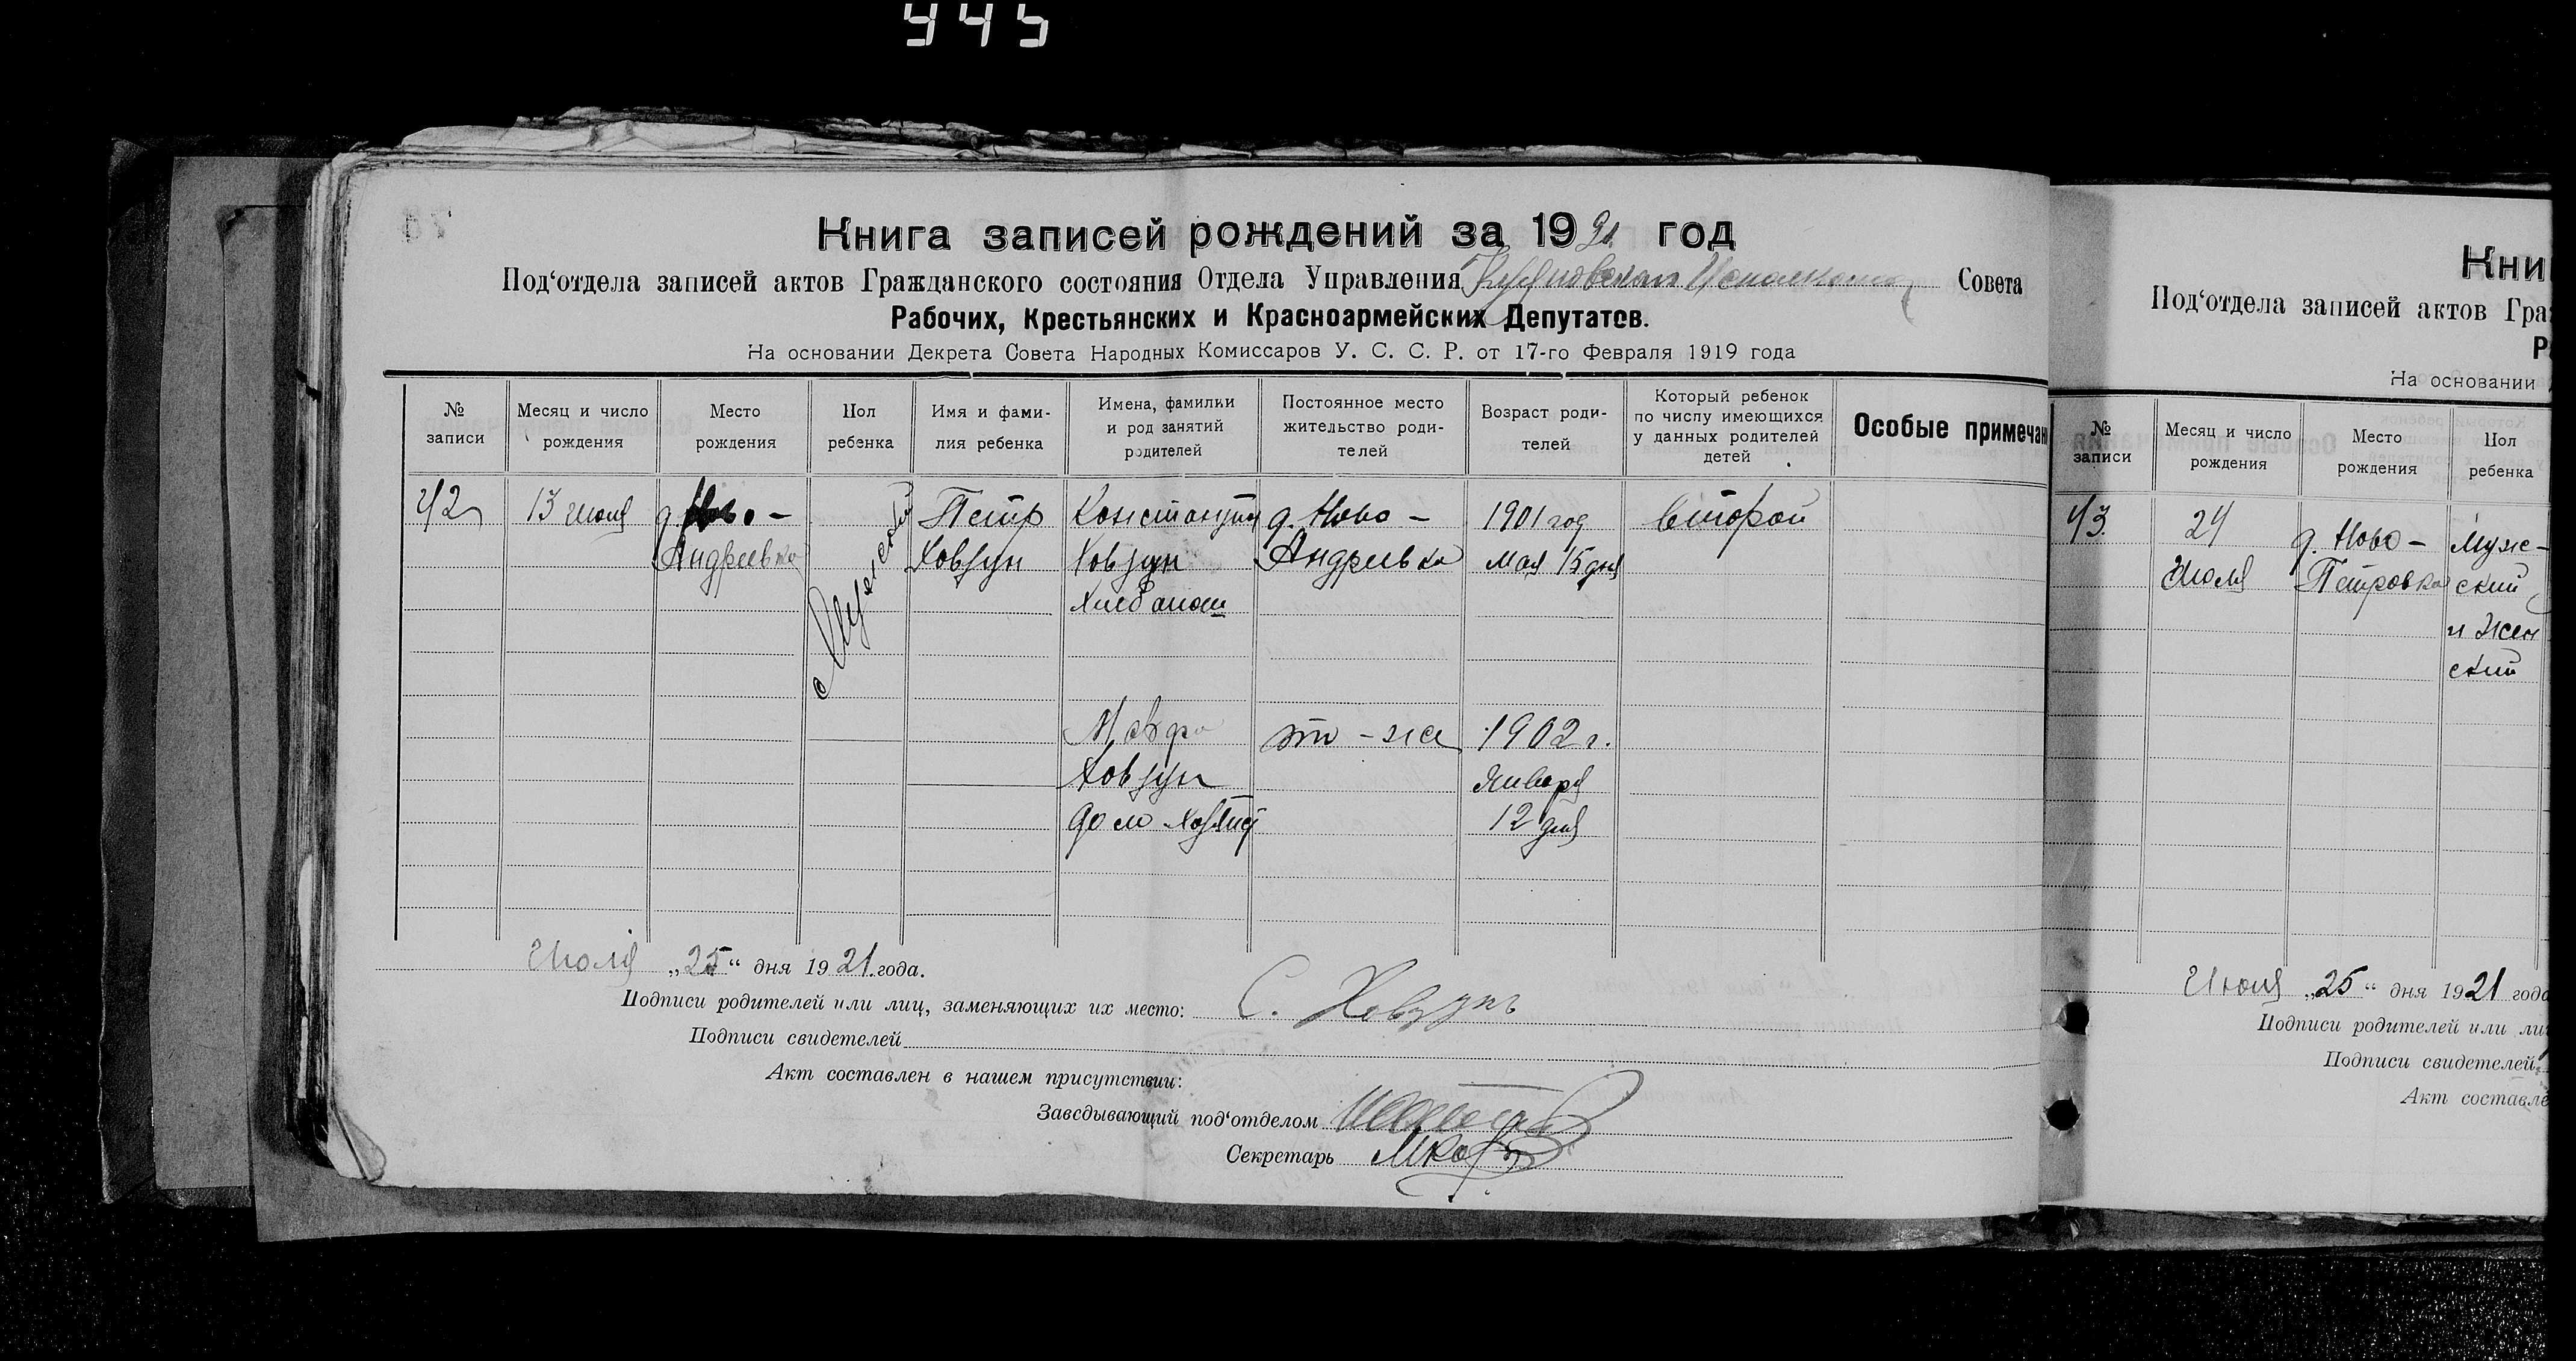 445
Книга записей рождений за 1921 год
Под‘отдела записей актов Гражданского состояния Отдела Управления Исполкома Совета
Рабочих, Крестьянских и Красноармейских Депутатов.
На основании Декрета Совета Народных Комиссаров У. С. С. Р. от 17-го Февраля 1919 года
№ записи
Месяц и число рождения
Место рождения
Пол ребенка
Имя и фамилия ребенка
Имена, фамилии и род занятий родителей
Постоянное место жительство родителей
Возраст родителей
Который ребенок по числу имеющихся у данных родителей детей
Особые примечан
42
13 июля
д. Ново-
Андреевка
Мужеский
Петр
Ховзун
Константин
Ховзун
Хлебопаш
д. Ново-
Андреевка
1901 год
мая 15 дня
второй
Мавра
Ховзун
дом хозяй
то-же
1902 г.
Января
12 дня
Июля „25“ дня 1921 года.
Подписи родителей или лиц, заменяющих их место: С. Ховзунъ
Подписи свидетелей
Акт составлен в нашем присутствии:
Заведывающий под‘отделом
Секретарь
Кни
Под‘отдела записей актов Гра
Р
На основании
№ записи
Месяц и число рождения
Место рождения
Пол ребенка
43
24
Июля
д. Ново-
Петровка
Муже-
ский
и Жен
ский
Июля „25“ дня 1921 года
Подписи родителей или ли
Подписи свидетелей
Акт составле